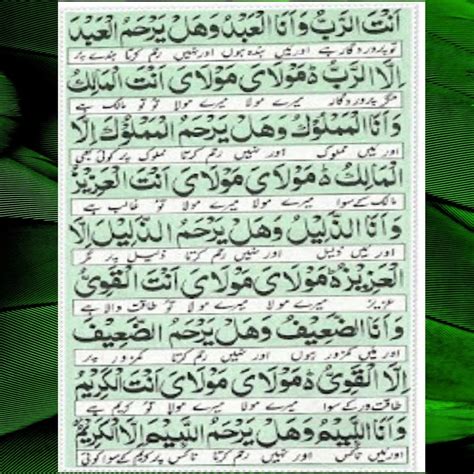 اَنْتَ الرَّبُّ وَاَنَا الْعَبْدُ وَهَلْ يَرْحَمُ الْعَبْدَ
تو پروردگار ہے اور میں بندہ ہوں اور نہیں رحم کرتا بندے پر
اِلَّا الرَّبُّ مَوْلَایَ مَوْلَایَ اَنْتَ الْمَالِكُ
مگر پروردگار میرے مولا میرے مولا تو مالک ہے
وَاَنَا الْمَمْلُوْكُ وَهَلْ يَرْحَمُ الْمَمْلُوْكَ اِلَّا
اور میں مملوک اور نہیں رحم کرتا مملوک پر کوئی بھی
الْمَالِكُ مَوْلَایَ مَوْلَایَ اَنْتَ الْعَزِيْزُ
مالک کے سوا میرے مولا میرے مولا تو غالب ہے
وَاَنَا الذَّلِيْلُ وَهَلْ يَرْحَمُ الذَّلِيْلَ اِلَّا
اور میں ذلیل اور نہیں رحم کرتا ذلیل پر مگر
الْعَزِيْزُ مَوْلَایَ مَوْلَایَ اَنْتَ الْقَوِیُّ
عزیز میرے مولا میرے مولا تو طاقت والا ہے
وَاَنَا الضَّعِيْفُ وَهَلْ يَرْحَمُ الضَّعِيْفَ
اور میں کمزور ہوں اور نہیں رحم کرتا کمزور پر
اِلَّا الْقَوِیُّ مَوْلَایَ مَوْلَایَ اَنْتَ الْكَرِيْمُ
طاقت ور کے سوا میرے مولا میرے مولا تو کریم ہے
وَاَنَا اللَّئِيْمُ وَهَلْ يَرْحَمُ اللَّئِيْمَ اِلَّا الْكَرِيْمُ
اور میں ناکس اور نہیں رحم کرتا ناکس پر کریم کے سوا کوئی